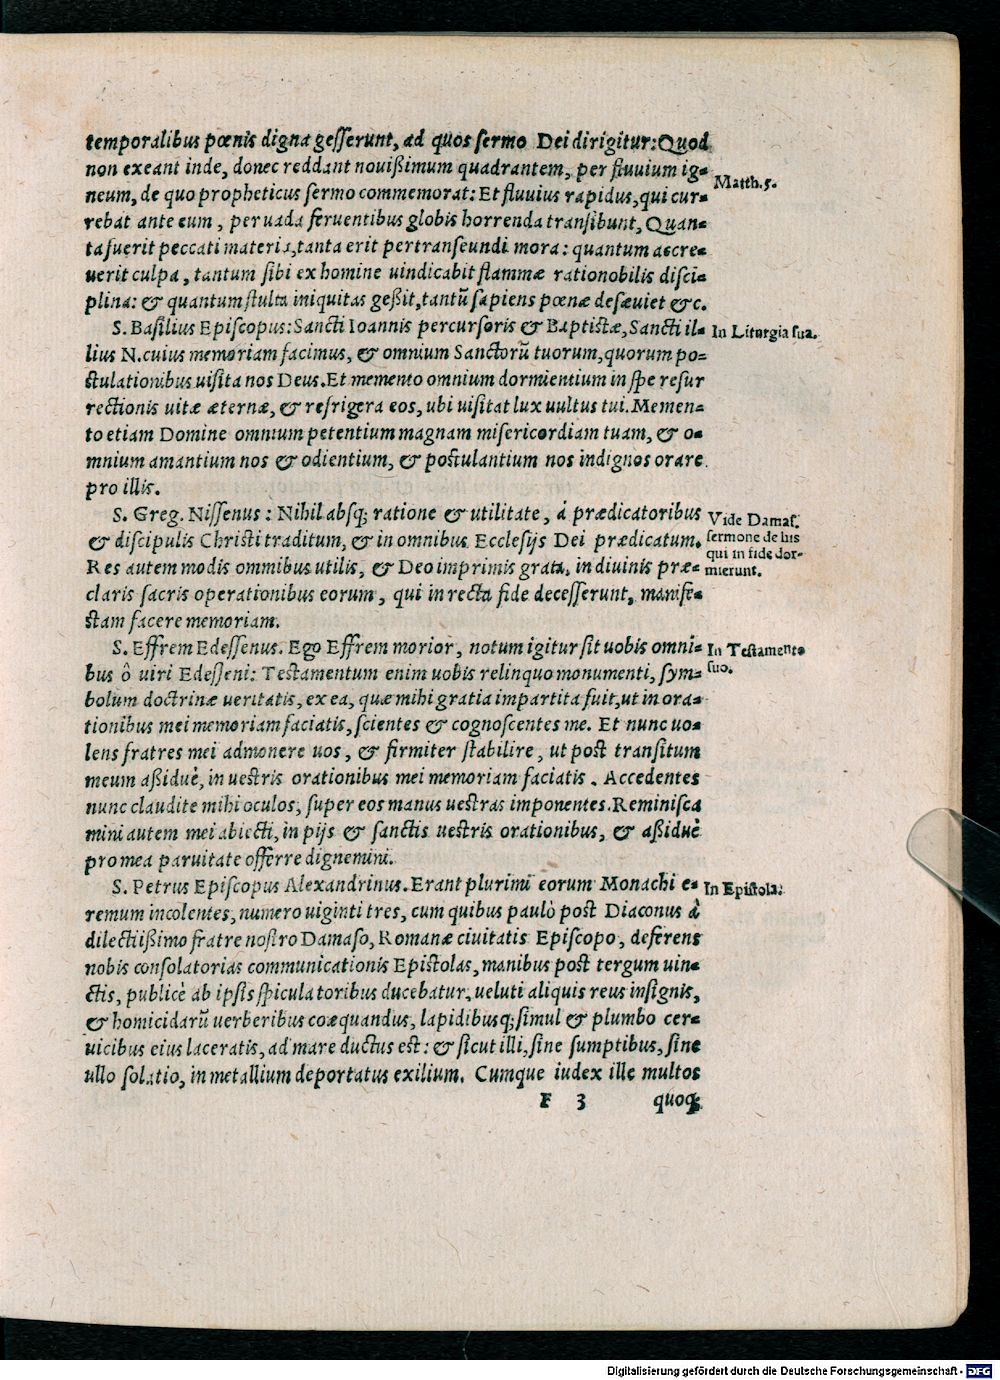 temporalibus pœnis digna gesserunt, ad quos sermo Dei dirigitur: Quod
non exeant inde, donec reddant nouißimum quadrantem, per fluuium ig=
neum, de quo propheticus sermo commemorat: Et fluuius rapidus, qui cur=
Matth. 5.
rebat ante eum, per uada feruentibus globis horrenda transibunt, Quan=
ta fuerit peccati materia, tanta erit pertranseundi mora: quantum accre=
uerit culpa, tantum sibi ex homine uindicabit flammæ rationobilis disci=
plina: & quantum stulta iniquitas geßit, tantũ sapiens pœnæ desæuiet &c.
S. Basilius Episcopus: Sancti Ioannis percursoris & Baptistæ, Sancti il=
In Liturgia sua.
lius N. cuius memoriam facimus, & omnium Sanctorũ tuorum, quorum po=
stulationibus uisita nos Deus. Et memento omnium dormientium in spe resur
rectionis uitæ æternæ, & refrigera eos, ubi uisitat lux uultus tui. Memen=
to etiam Domine omnium petentium magnam misericordiam tuam, & o=
mnium amantium nos & odientium, & postulantium nos indignos orare
pro illis.
S. Greg. Nissenus: Nihil absq; ratione & utilitate, á prædicatoribus
& discipulis Christi traditum, & in omnibus Ecclesijs Dei prædicatum.
Res autem modis ommibus utilis, & Deo imprimis grata, in diuinis præ=
Vide Damas.
sermone de his
qui in fide dor-
mierunt.
claris sacris operationibus eorum, qui in recta fide decesserunt, manife=
stam facere memoriam.
S. Effrem Edessenus. Ego Effrem morior, notum igitur sit uobis omni=
bus ô uiri Edesseni: Testamentum enim uobis relinquo monumenti, sym=
In Testamento
suo.
bolum doctrinæ ueritatis, ex ea, quæ mihi gratia impartita fuit, ut in ora=
tionibus mei memoriam faciatis, scientes & cognoscentes me. Et nunc uo=
lens fratres mei admonere uos, & firmiter stabilire, ut post transitum
meum aßiduè, in uestris orationibus mei memoriam faciatis. Accedentes
nunc claudite mihi oculos, super eos manus uestras imponentes. Reminisca
mini autem mei abiecti, in pijs & sanctis uestris orationibus, & aßiduè
pro mea paruitate offerre dignemini.
S. Petrus Episcopus Alexandrinus. Erant plurimi eorum Monachi e=
In Epistola.
remum incolentes, numero uiginti tres, cum quibus paulò post Diaconus à
dilectiißimo fratre nostro Damaso, Romanæ ciuitatis Episcopo, deferens
nobis consolatorias communicationis Epistolas, manibus post tergum uin=
ctis, publicè ab ipsis spiculatoribus ducebatur, ueluti aliquis reus insignis,
& homicidarũ uerberibus coæquandus, lapidibusq; simul & plumbo cer=
uicibus eius laceratis, ad mare ductus est: & sicut illi, sine sumptibus, sine
ullo solatio, in metallium deportatus exilium. Cumque iudex ille multos
F 3 quoq;
Digitalisierung gefördert durch die Deutsche Forschungsgemeinschaft - DFG